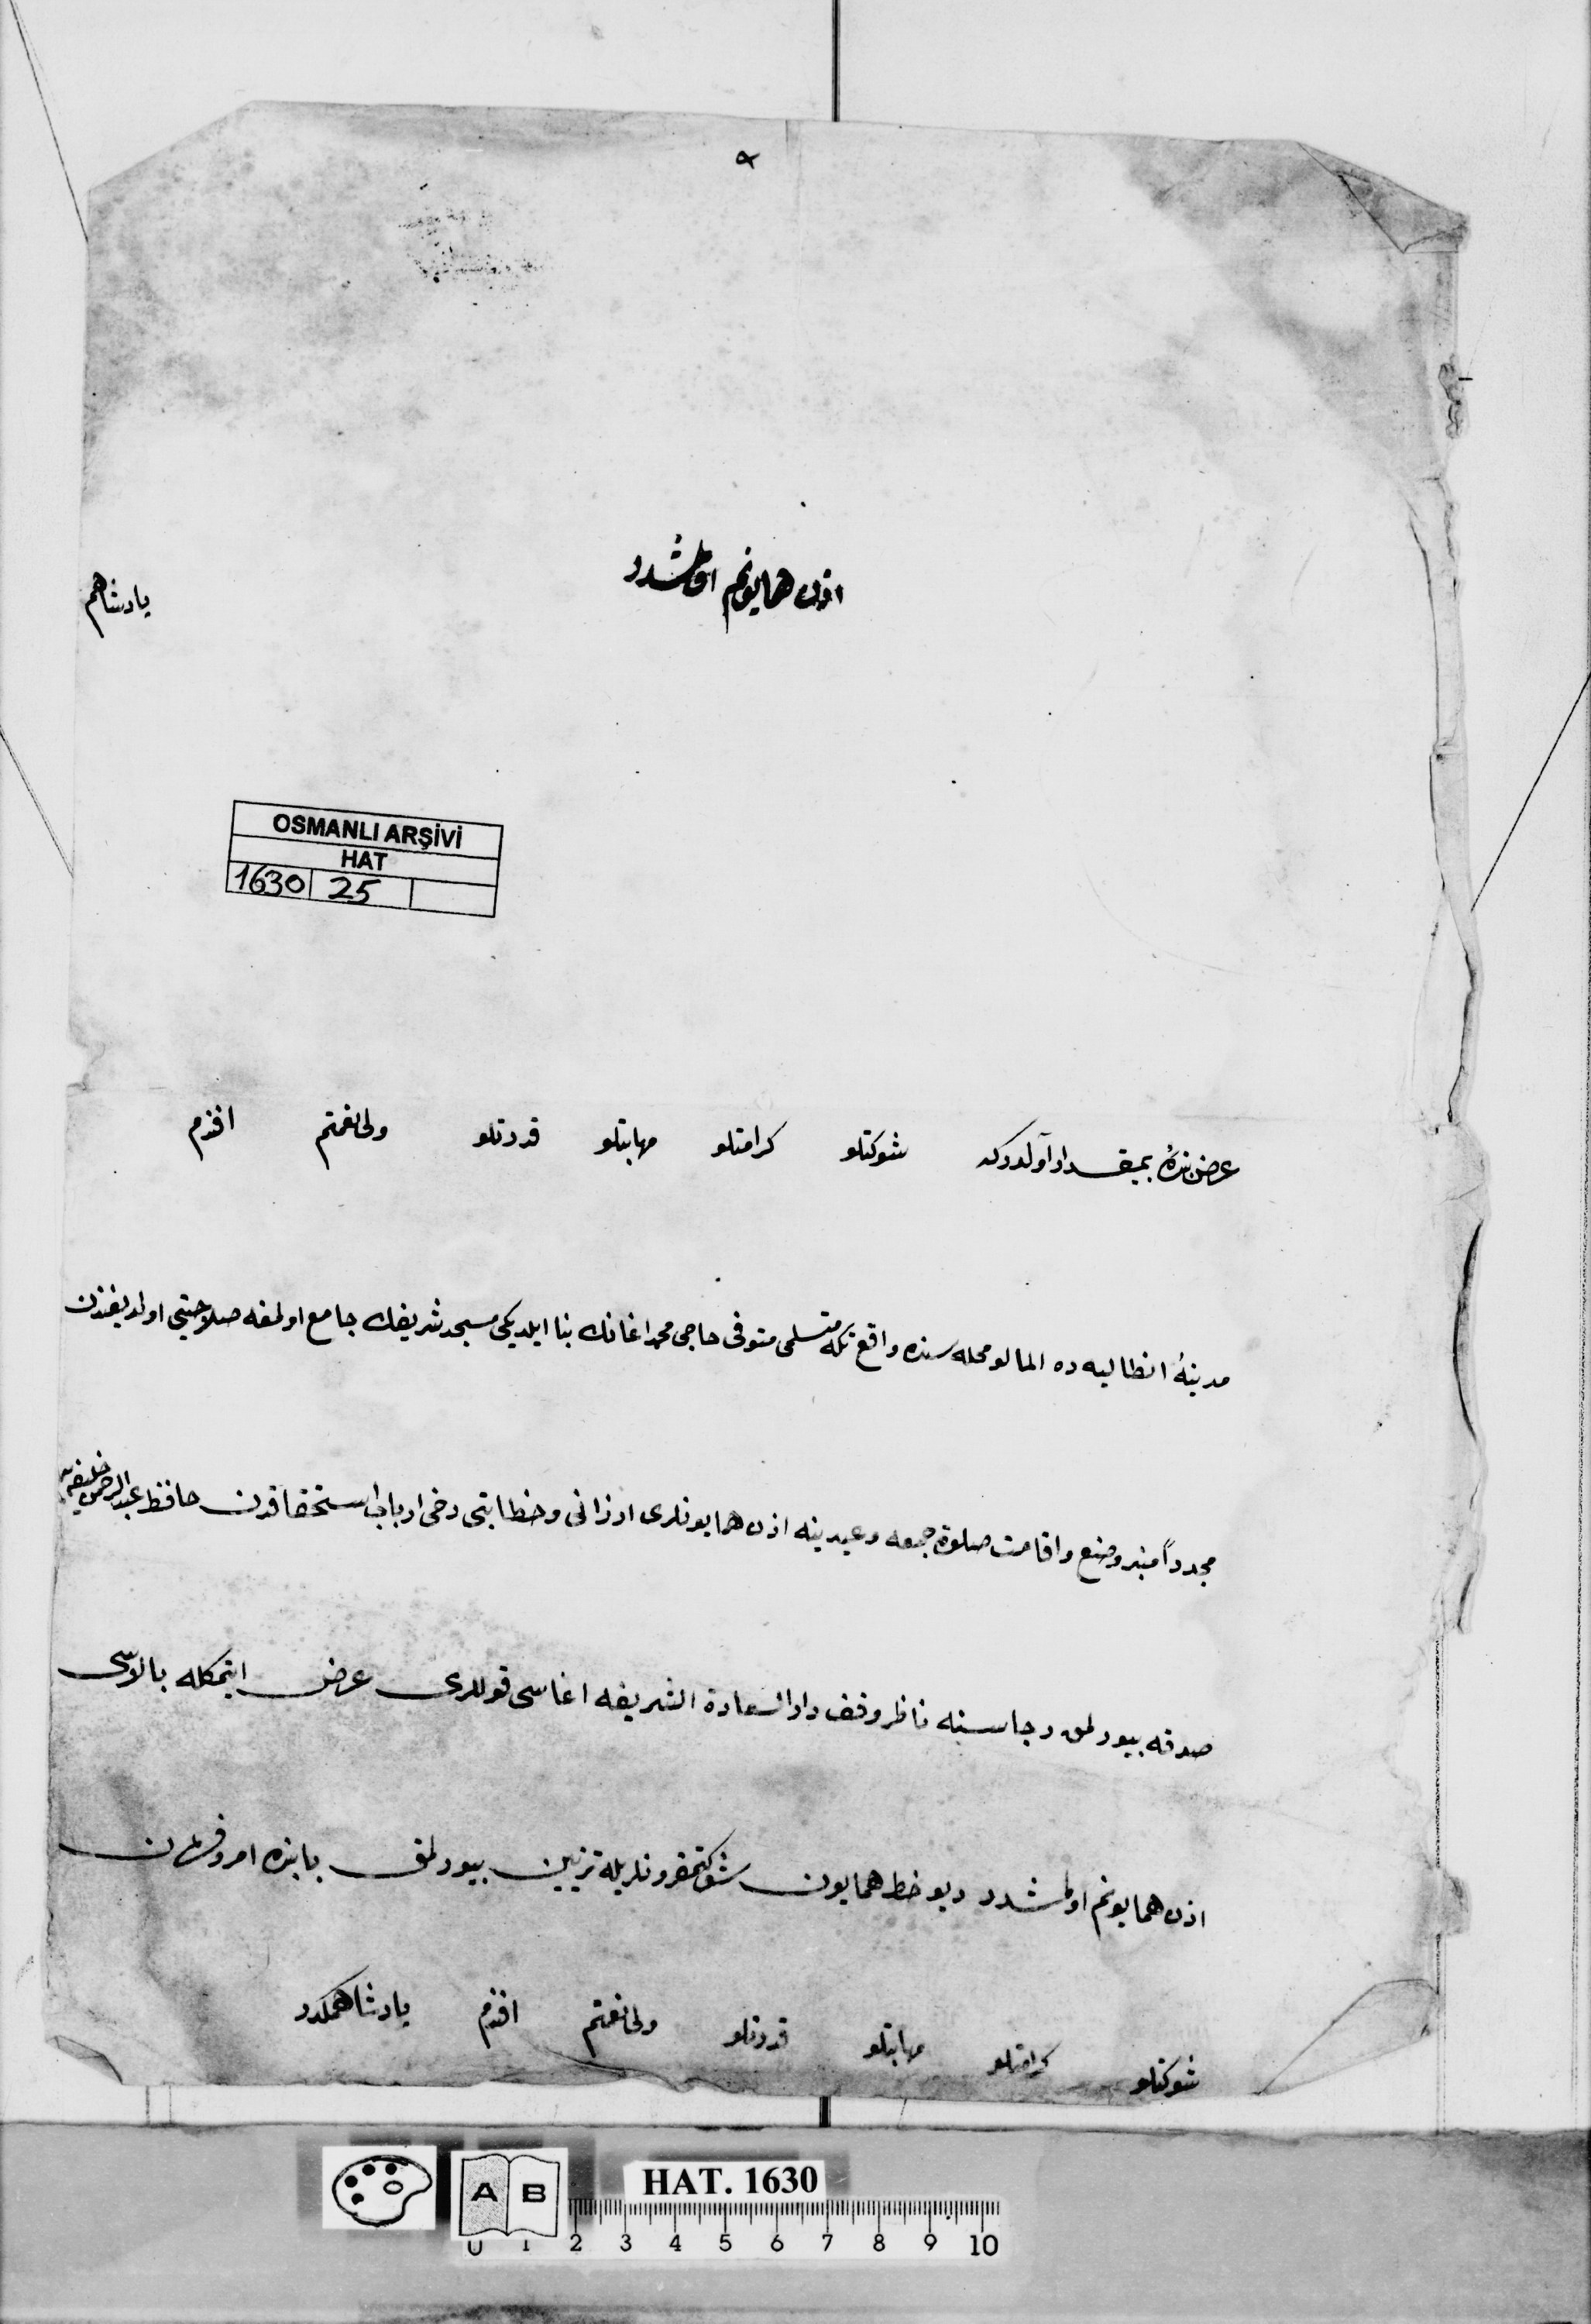 اذن همایونم اولمشدر
پادشاهم
OSMANLI ARŞİVİ
HAT
1630 25
عرض بندهٔ بیمقدار اولدرکه شوکتلو کرامتلو مهابتلو قدرتلو ولینعمتم افندم
مدینهٔ انطالیه ده المالو محله سنده واقع تکه متسلمی متوفی حاجی محمد اغانك بنا ایلدیکی مسجد شریفك جامع اولمغه صلاحیتی اولدیغندن
مجدداً منبر وضع و اقامت صلوة جمعه و عیدینه اذن همایونلری ارزانی و خطابتی دخی ارباب استحقاقدن حافظ عبدالرحمن خلیفه یه
صدقه بیورلمق رجاسنه ناظر وقف دار السعادة الشریفه اغاسی قوللری عرض ایتمکله بالاسی
اذن همایونم اولمشدر دیو خط همایون شوکتمقرونلریله تزیین بیورلمق بابنده امر و فرمان
شوکتلو کرامتلو مهابتلو قدرتلو ولینعمتم افندم پادشاهمكدر
A B
HAT. 1630
0 1 2 3 4 5 6 7 8 9 10